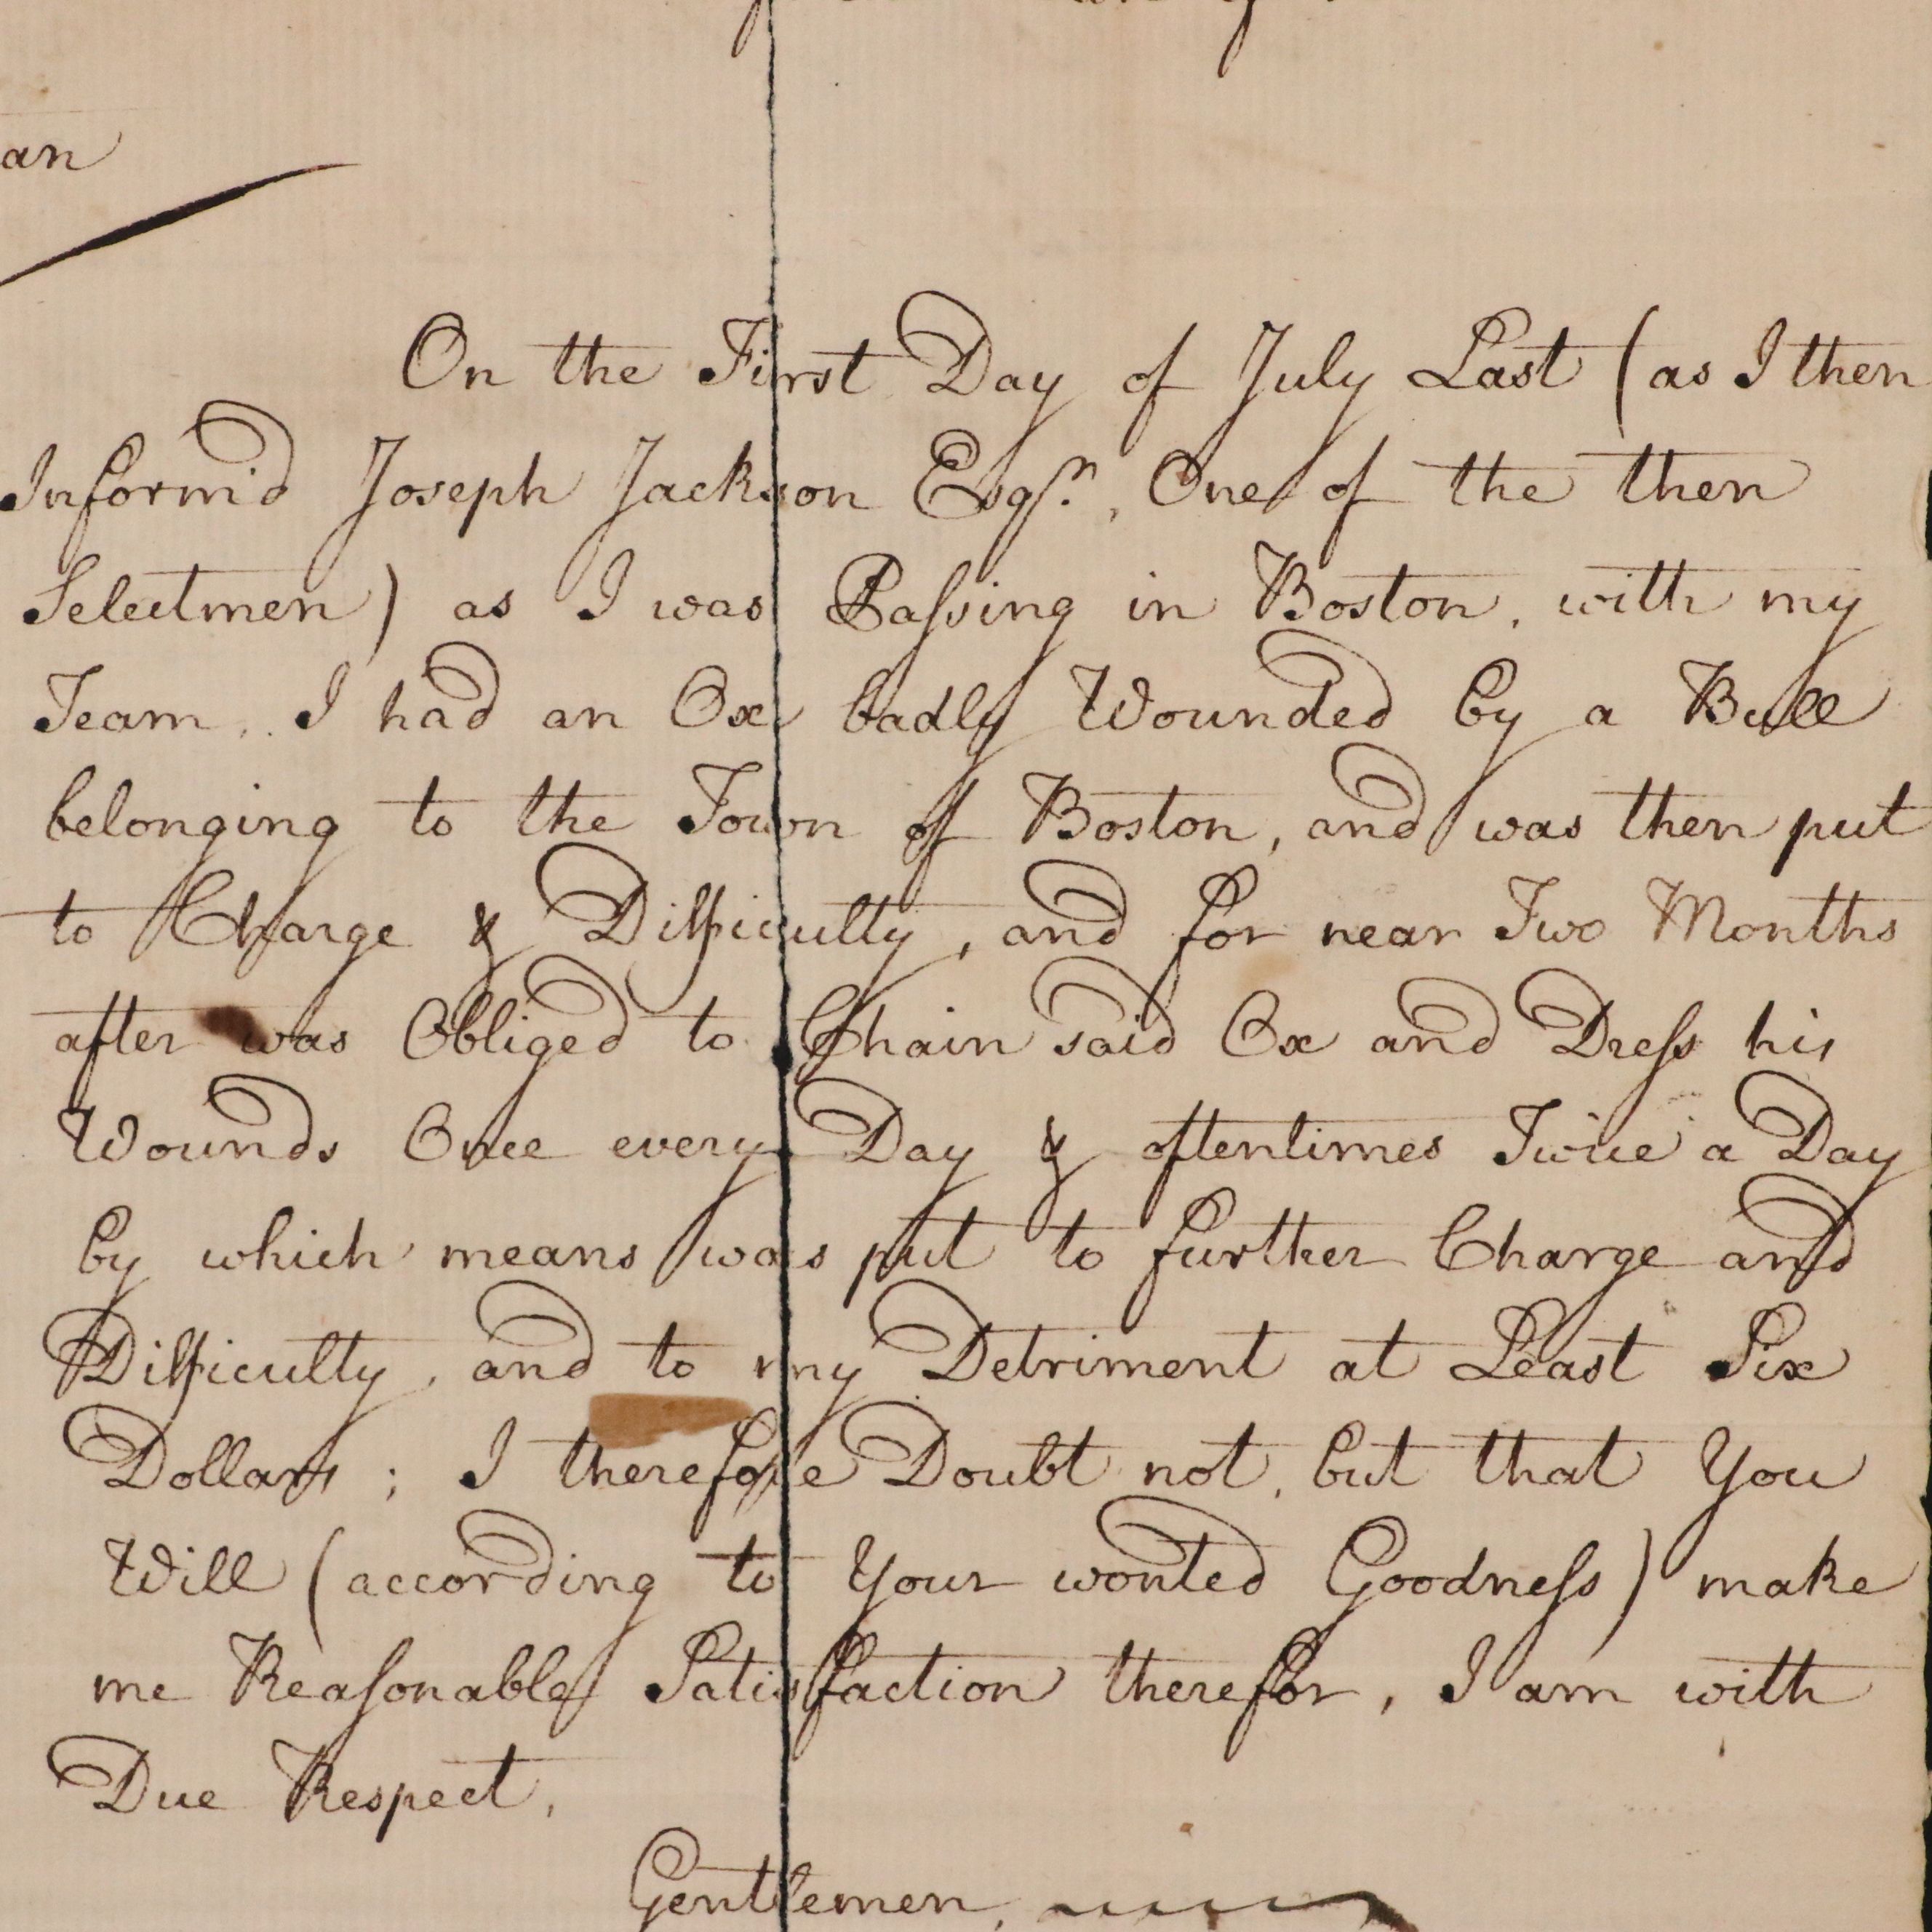 an
On the First Day of July Last (as I then
Inform'd Joseph Jackson Esqr., One of the then
Selectmen) as I was Passing in Boston, with my
Team, I had an Ox badly Wounded by a Bull
belonging to the Town of Boston, and was then put
to Charge & Difficulty, and for near Two Months
after was Obliged to Chain said Ox and Dress his
Wounds Once every Day & oftentimes Twice a Day
by which means was put to further Charge and
Difficulty, and to my Detriment at Least Six
Dollars; I therefore Doubt not, but that You
Will (according to Your wonted Goodness) make
me Reasonable Satisfaction therefor, I am with
Due Respect,
Gentlemen,